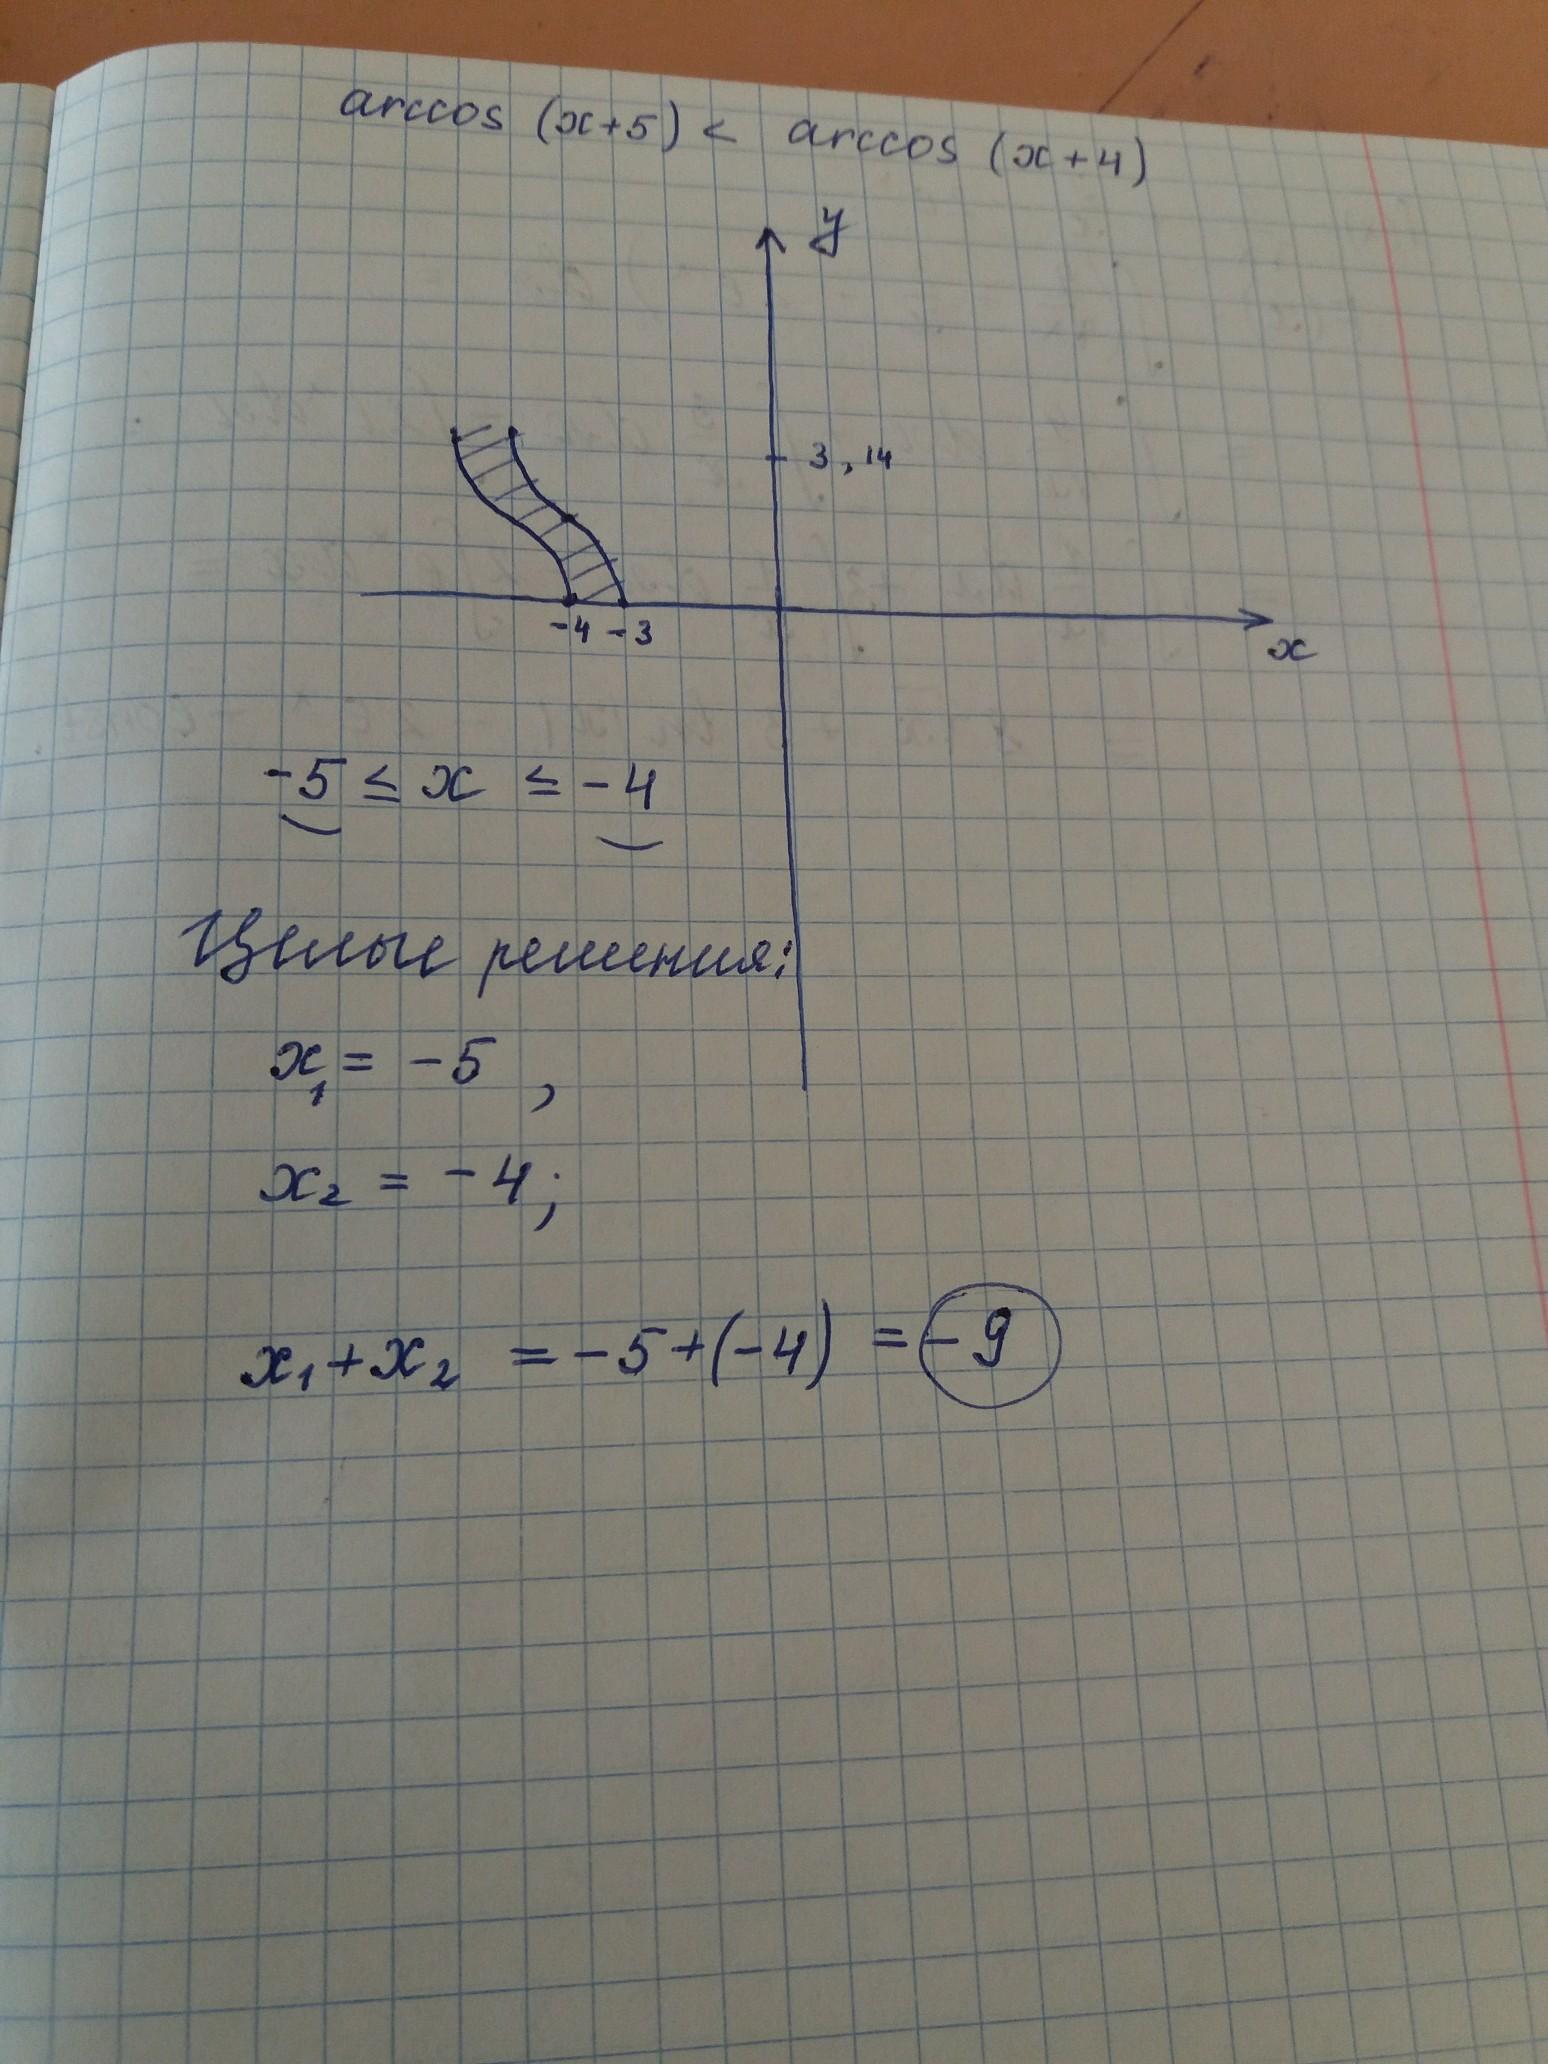 arccos (x+5) < arccos (x+4)
y
3,14
-4 -3
x
-5 ≤ x ≤ -4
Целые решения:
x₁ = -5 ,
x₂ = -4;
x₁+x₂ = -5+(-4) = -9